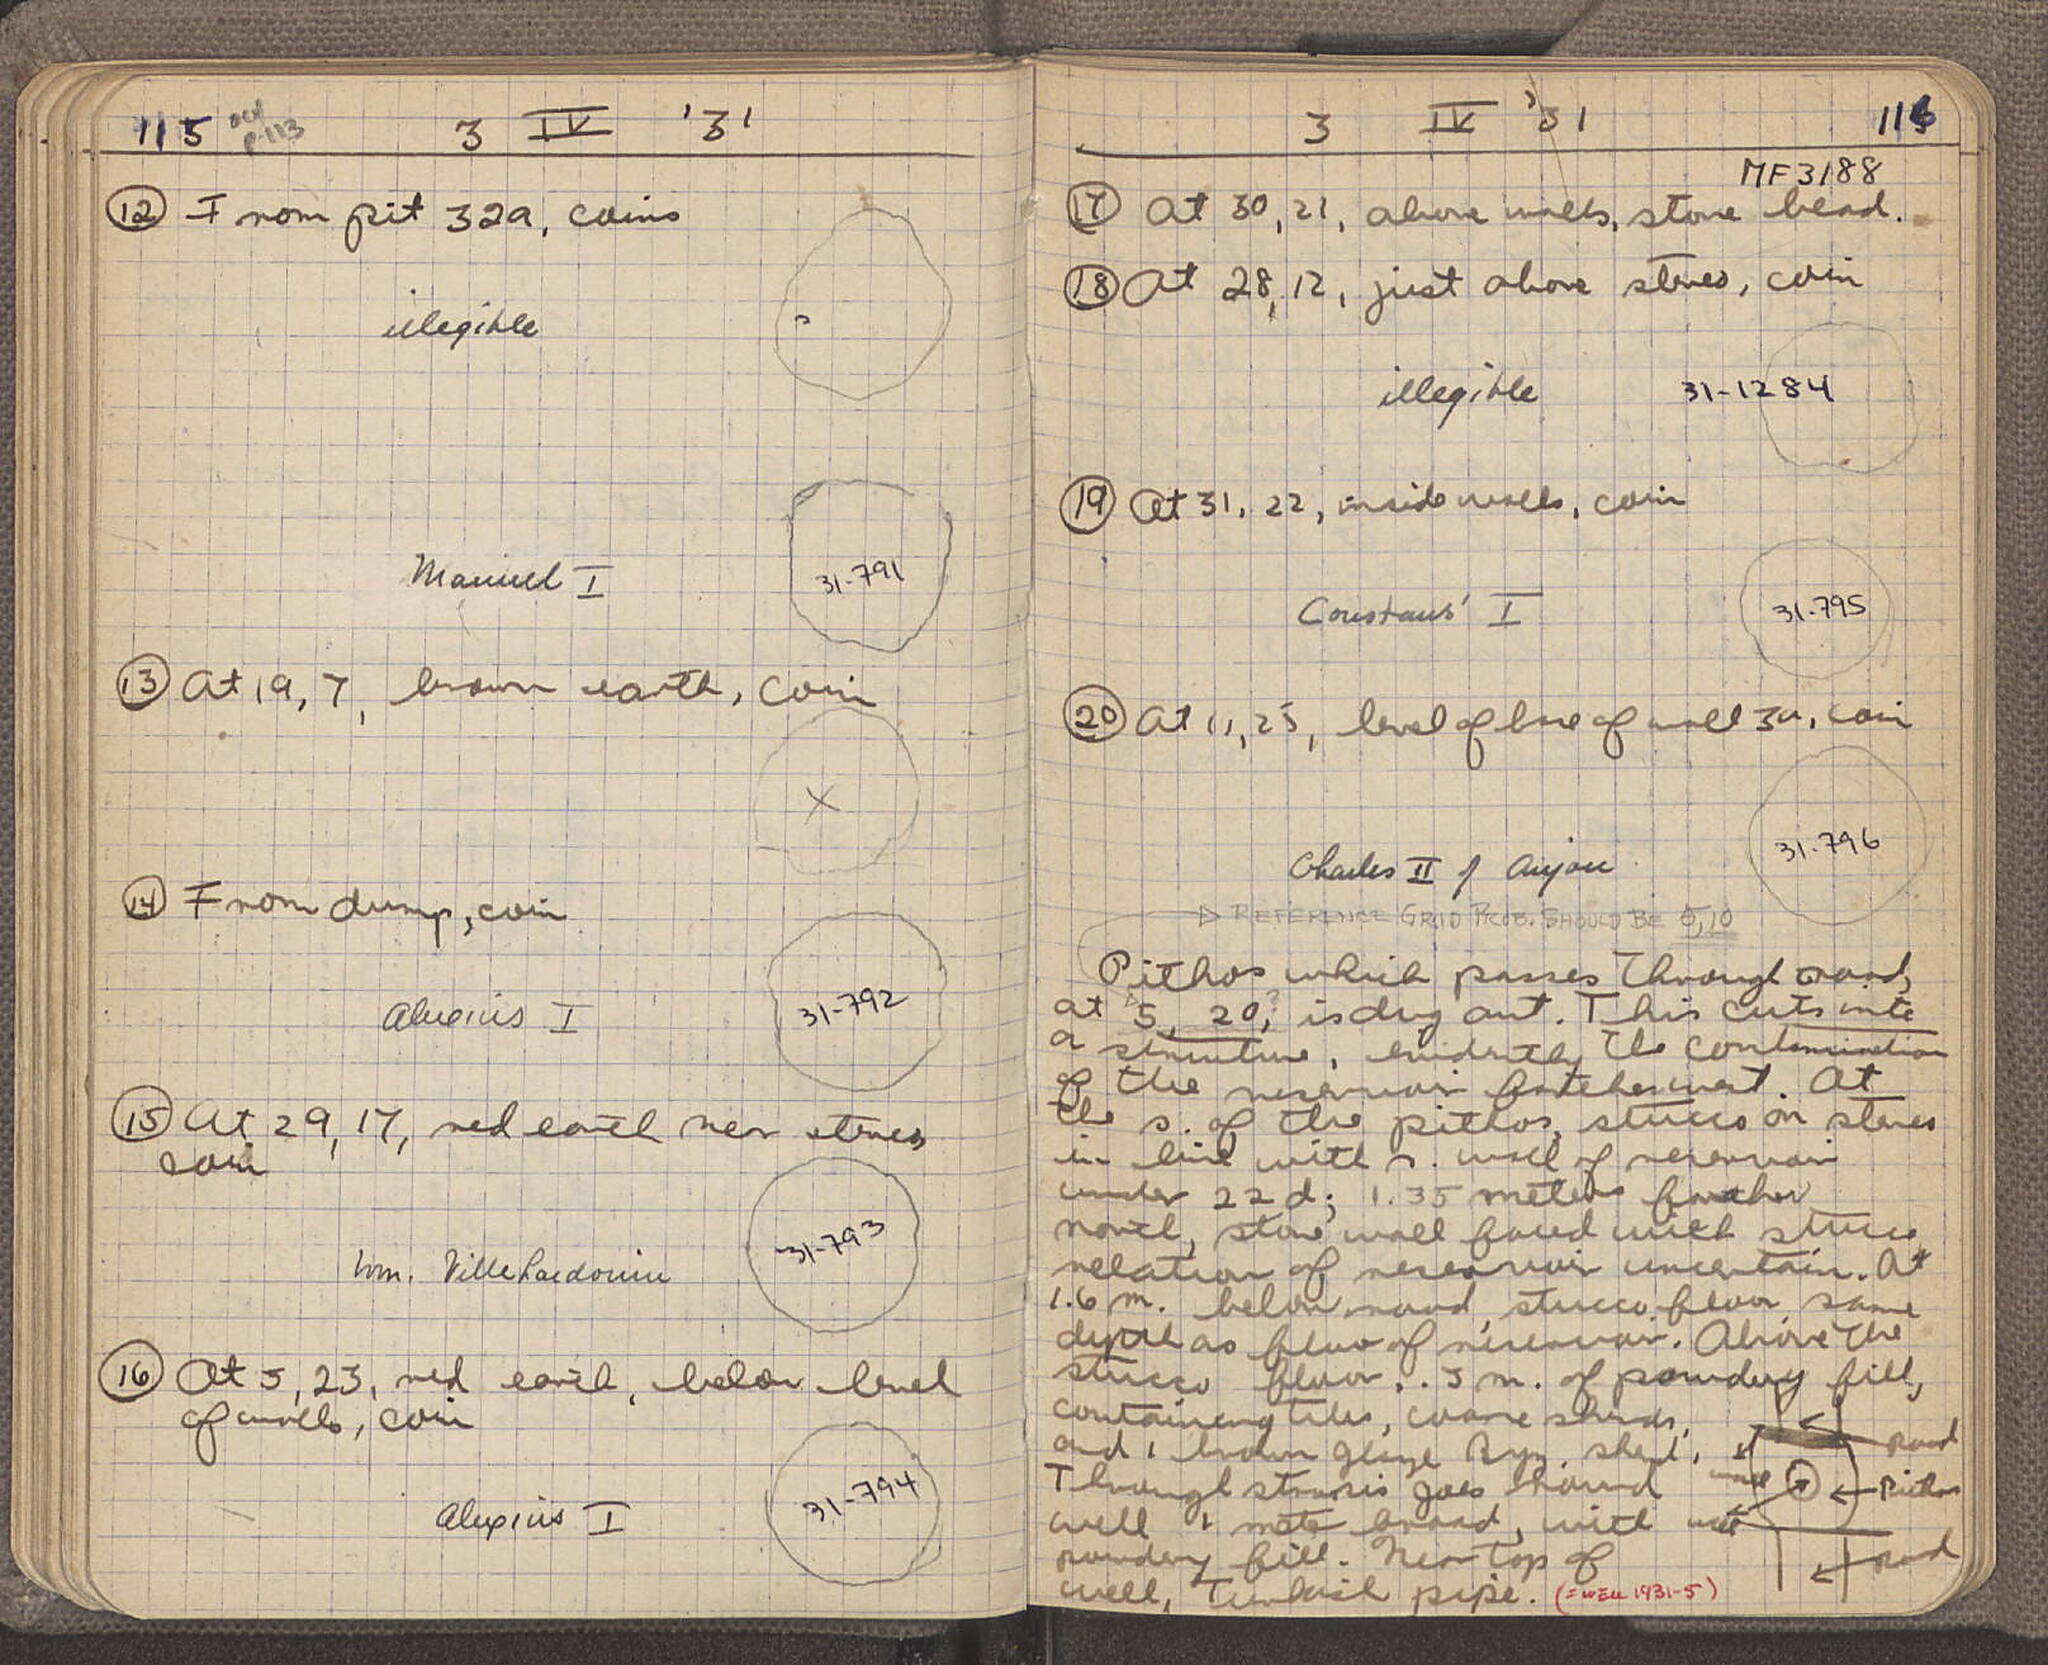 115
p. 113
3 IV '31
12 From pit 32a, coins
illegible
Manuel I
31-791
13 At 19, 7, brown earth, coin
X
14 From dump, coin
Alexius I
31-792
15 At 29, 17, red earth near stones
coin
Wm. Villehardouin
31-793
16 At 5, 23, red earth, below level
of walls, coin
Alexius I
31-794
3 IV '31
116
MF 3188
17 At 30, 21, above walls, stone bead.
18 At 28, 12, just above stones, coin
illegible 31-1284
19 At 31, 22, inside walls, coin
Constans I
31-795
20 At 11, 25, level of base of wall 3a, coin
31-796
Charles II of Anjou
REFERENCE GRID PROB. SHOULD BE 5,10
Pithos which passes through road,
at 5, 20,? is dug out. This cuts into
a structure, evidently the
of the reservoir At
the s. of the pithos, stucco on stones
in line with s. wall of reservoir
under 22 d; 1.35 meters further
north, stone wall faced with stucco
relation of reservoir uncertain. At
1.6 m. below road, stucco floor same
depth as floor of reservoir. Above the
stucco floor, .5 m. of powdery fill,
containing tiles, coarse sherds,
and 1 brown glaze Byz. sherd.
Through goes round
well 1 meter broad, with
powdery fill. Near top of
well, Turkish pipe. (= WELL 1931-5)
road
wall
Pithos
wall
road